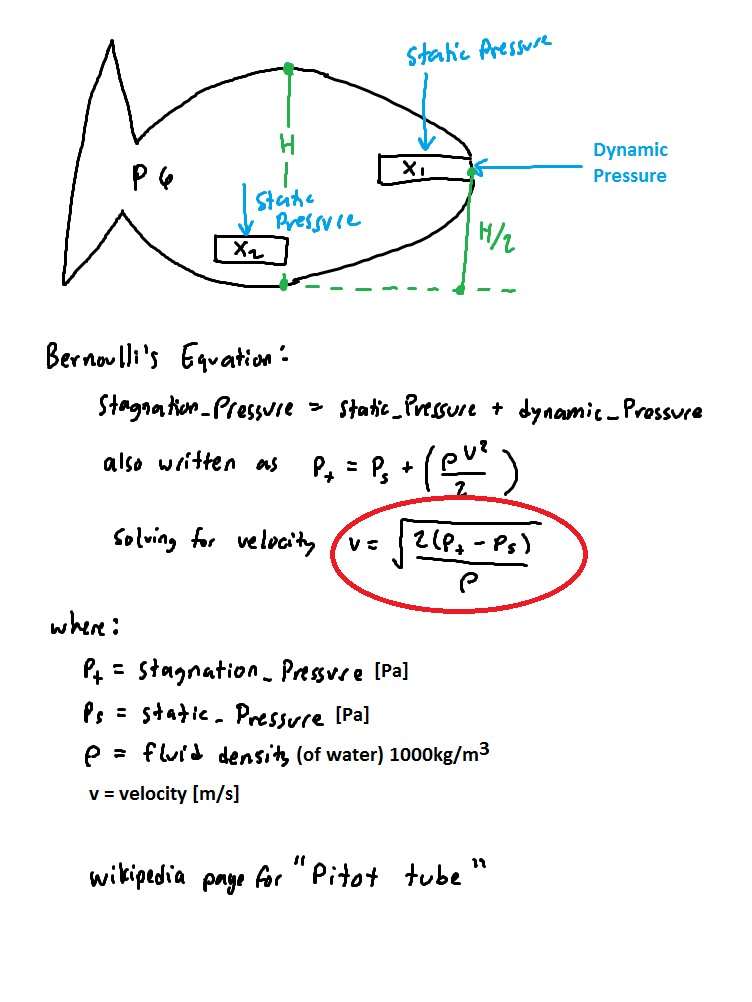 Static Pressure
H
X1
Dynamic
Pressure
P6
Static
Pressure
H/2
X2
Bernoulli's Equation:
Stagnation_Pressure = static_Pressure + dynamic_Pressure
also written as Pt = Ps + (ρV²/2)
Solving for velocity v = √(2(Pt - Ps)/ρ)
where:
Pt = stagnation_Pressure [Pa]
Ps = static_Pressure [Pa]
ρ = fluid density (of water) 1000kg/m³
v = velocity [m/s]
wikipedia page for "Pitot tube"